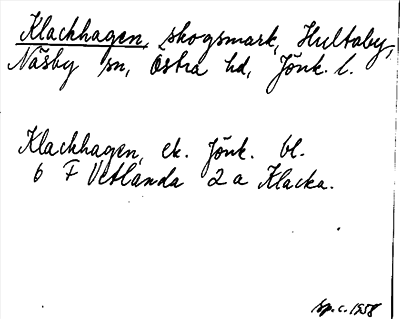 Klackhagen, skogsmark, Hultaby,
Näsby sn, Östra hd, Jönk. l.
Klackhagen, ek. Jönk. bl.
6 F Vetlanda 2 a Klacka.
sp.c. 1958